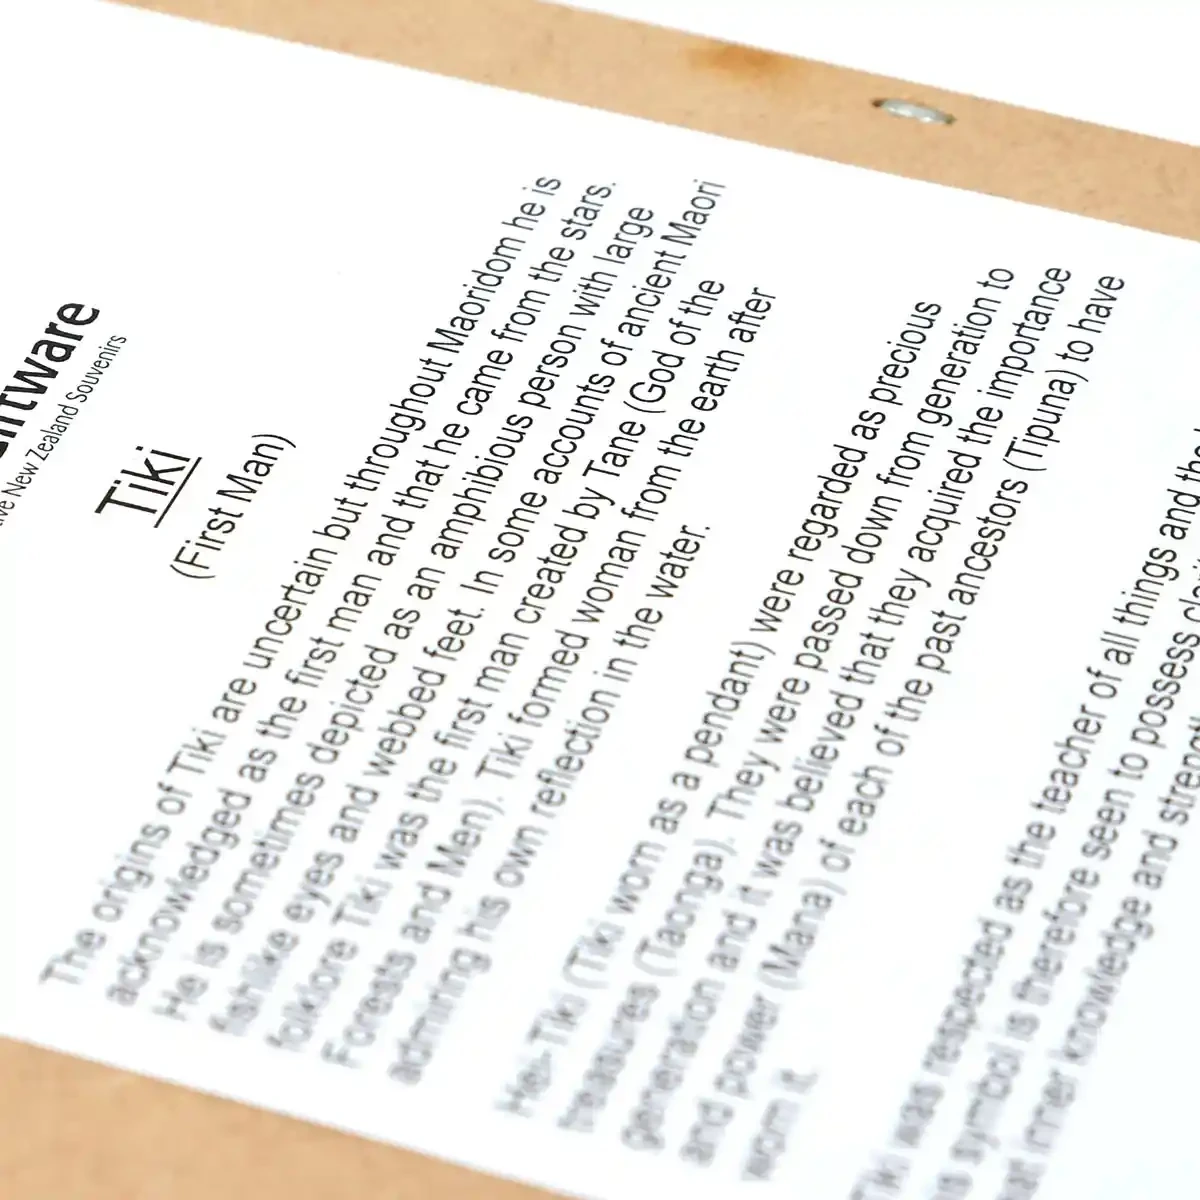 New Zealand Souvenirs
Tiki
(First Man)
The origins of Tiki are uncertain but throughout Maoridom he is
acknowledged as the first man and that he came from the stars.
He is sometimes depicted as an amphibious person with large
fishlike eyes and webbed feet. In some accounts of ancient Maori
folklore Tiki was the first man created by Tane (God of the
Forests and Men). Tiki formed woman from the earth after
admiring his own reflection in the water.
Hei-Tiki (Tiki worn as a pendant) were regarded as precious
treasures (Taonga). They were passed down from generation to
generation and it was believed that they acquired the importance
and power (Mana) of each of the past ancestors (Tipuna) to have
worn it.
Tiki was respected as the teacher of all things and the
symbol is therefore seen to possess
inner knowledge and